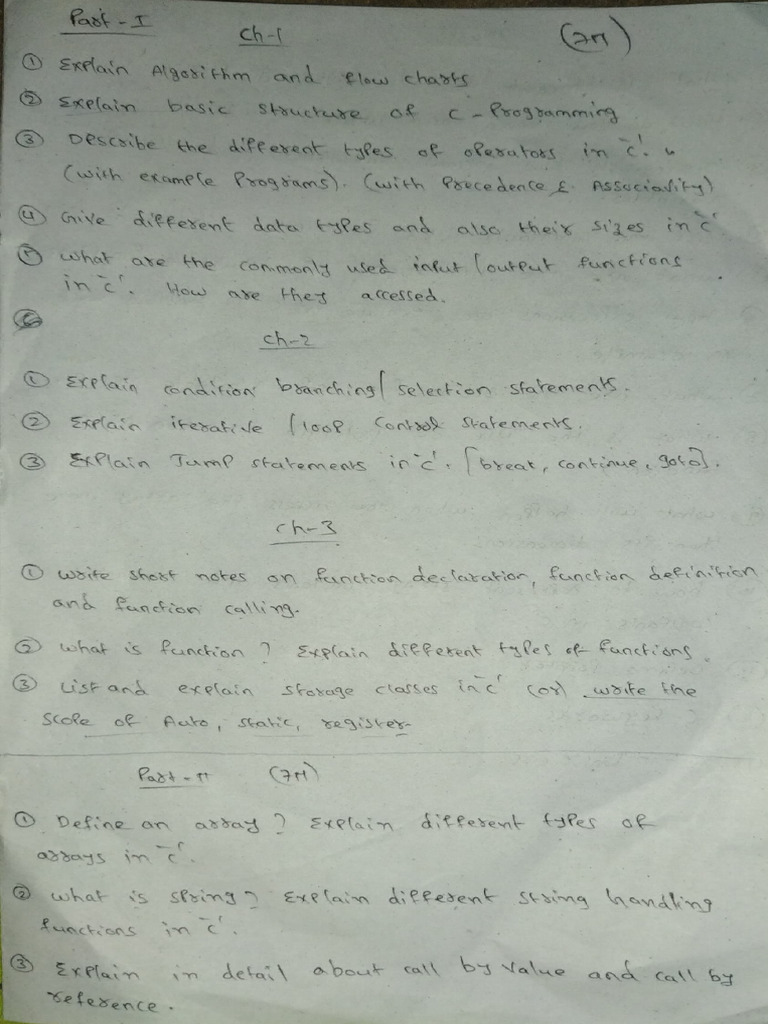 Part - I
Ch-1
(7M)
① Explain Algorithm and flow charts
② Explain basic structure of C - Programming
③ Describe the different types of operators in 'c'.
(with example Programs). (with Precedence & Associavity)
④ Give different data types and also their sizes in 'c'
⑤ what are the commonly used input / output functions
in 'c'. How are they accessed.
⑥
Ch-2
① Explain condition branching / selection statements.
② Explain iterative / loop control statements.
③ Explain Jump statements in 'c'. [break, continue, goto].
Ch-3
① write short notes on function declaration, function definition
and function calling.
② what is function ? Explain different types of functions.
③ List and explain storage classes in 'c' (or) write the
scope of Auto, static, register.
Part - II (7M)
① Define an array ? Explain different types of
arrays in 'c'.
② what is string ? Explain different string handling
functions in 'c'.
③ Explain in detail about call by value and call by
reference.